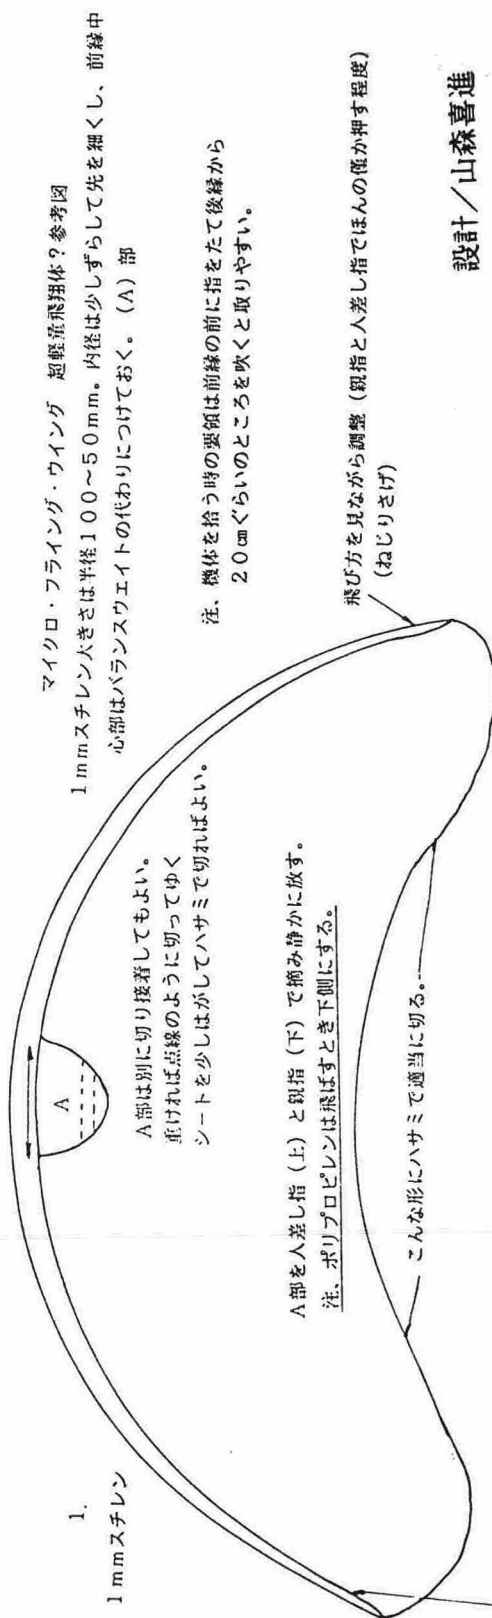 マイクロ・フライング・ウイング　超軽量飛翔体？参考図
1mmスチレン大きさは半径100~50mm。内径は少しずらして先を細くし、前縁中
心部はバランスウェイトの代わりにつけておく。（A）部
注、機体を拾う時の要領は前縁の前に指をたて後縁から
20㎝ぐらいのところを吹くと取りやすい。
飛び方を見ながら調整（親指と人差し指でほんの僅か押す程度）
（ねじりさげ）
設計／山森喜進
1.
1mmスチレン
A
A部は別に切り接着してもよい。
重ければ点線のように切ってゆく
シートを少しはがしてハサミで切ればよい。
A部を人差し指（上）と親指（下）で摘み静かに放す。
注、ポリプロピレンは飛ばすとき下側にする。
こんな形にハサミで適当に切る。